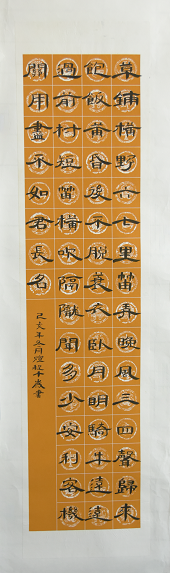 草鋪橫野六七里笛弄晚風三四聲歸來
飽飯黃昏後不脫蓑衣臥月明騎牛遠遠
過前村短笛橫吹隔隴聞多少長安名利客機
關用盡不如君長名
己亥年冬月
歲書